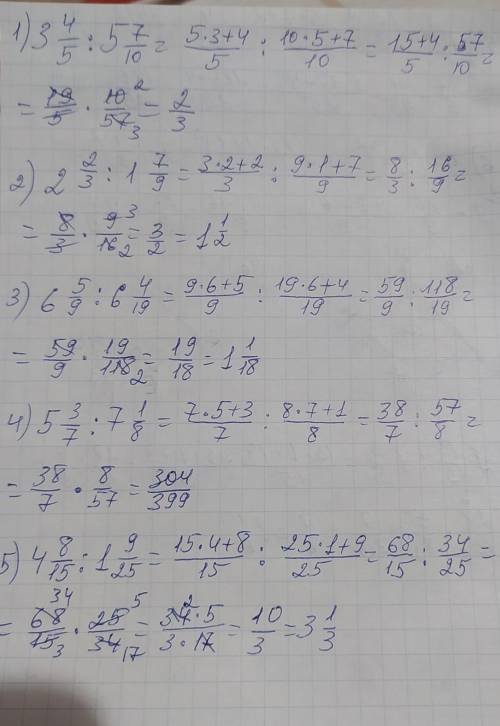 1) 3 4/5 : 5 7/10 = (5·3+4)/5 : (10·5+7)/10 = (15+4)/5 : 57/10 =
= 19/5 · 10/57 2 3 = 2/3
2) 2 2/3 : 1 7/9 = (3·2+2)/3 : (9·1+7)/9 = 8/3 : 16/9 =
= 8/3 · 9/16 3 2 = 3/2 = 1 1/2
3) 6 5/9 : 6 4/19 = (9·6+5)/9 : (19·6+4)/19 = 59/9 : 118/19 =
= 59/9 · 19/118 2 = 19/18 = 1 1/18
4) 5 3/7 : 7 1/8 = (7·5+3)/7 : (8·7+1)/8 = 38/7 : 57/8 =
= 38/7 · 8/57 = 304/399
5) 4 8/15 : 1 9/25 = (15·4+8)/15 : (25·1+9)/25 = 68/15 : 34/25 =
= 68/15 34 3 · 25/34 5 17 = (34·5)/(3·17) 2 = 10/3 = 3 1/3